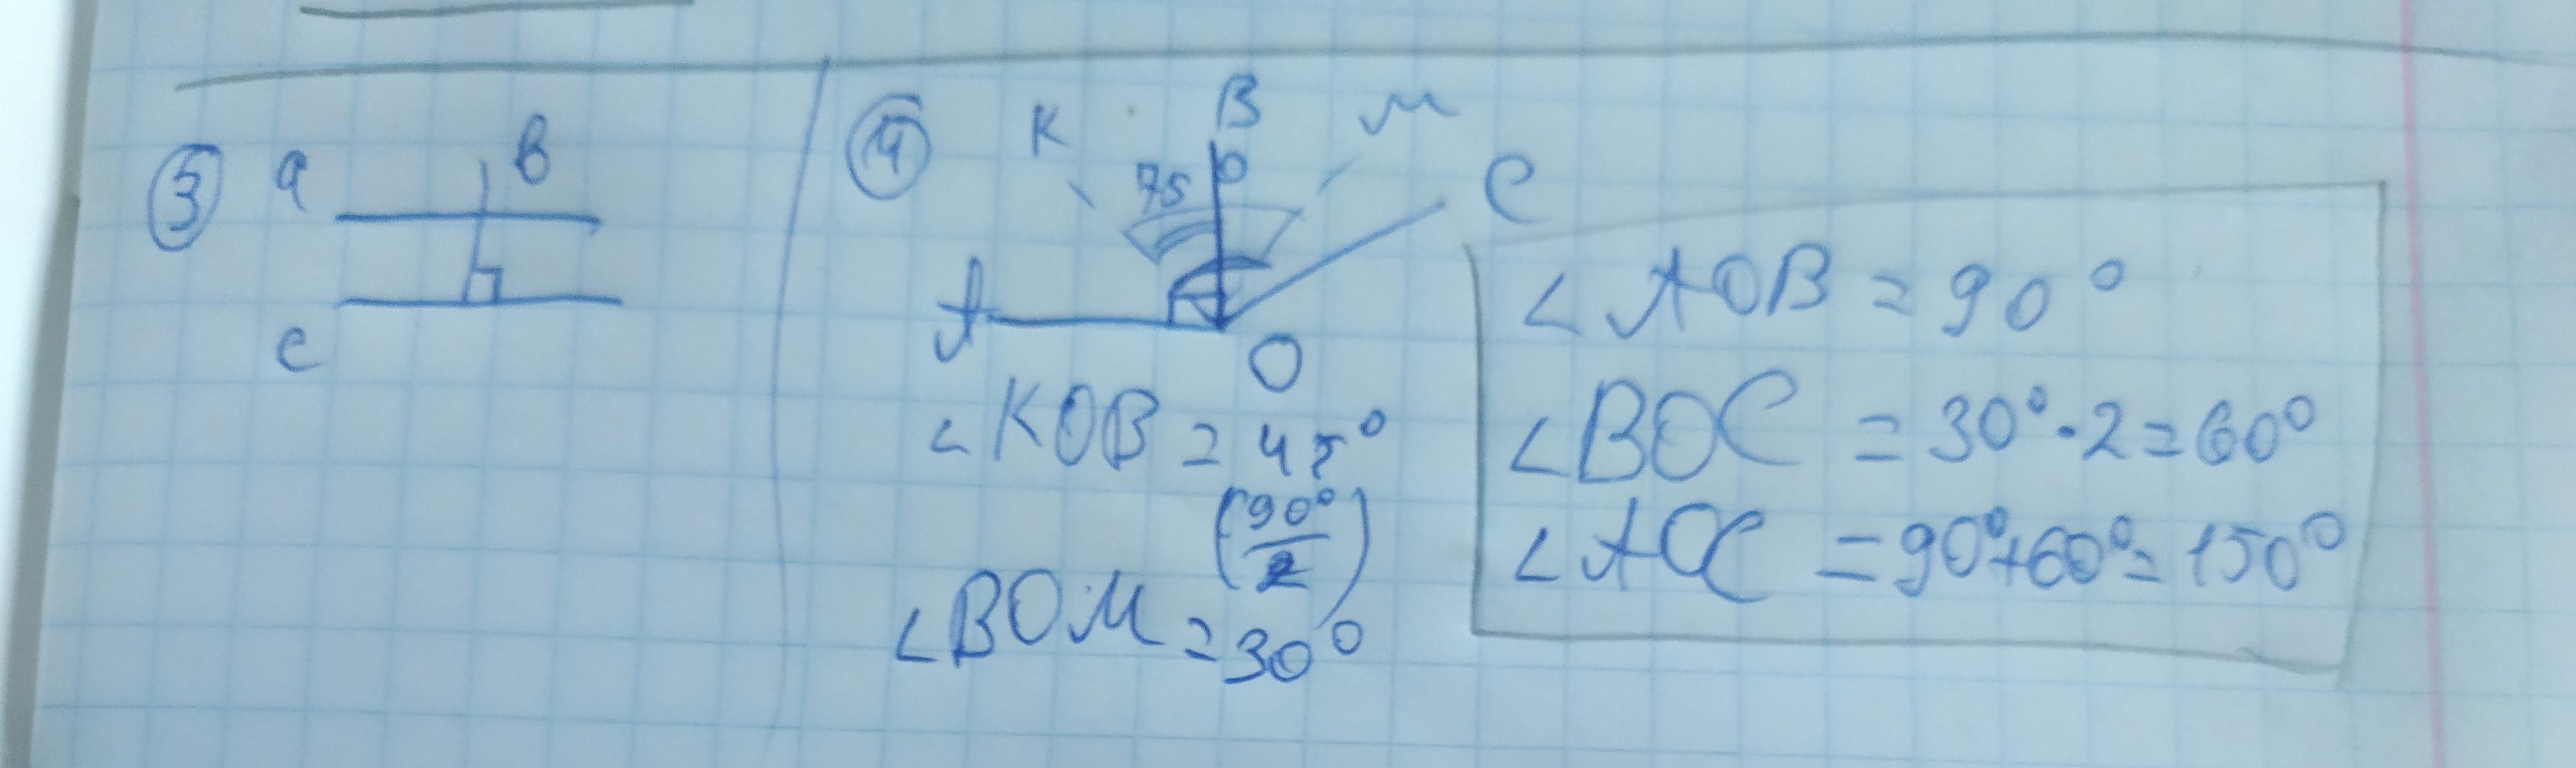 ③ a b
c
④ K B M
75 C
A O
∠KOB = 45°
(90°/2)
∠BOM = 30°
∠AOB = 90°
∠BOC = 30°·2=60°
∠AOC = 90°+60°=150°